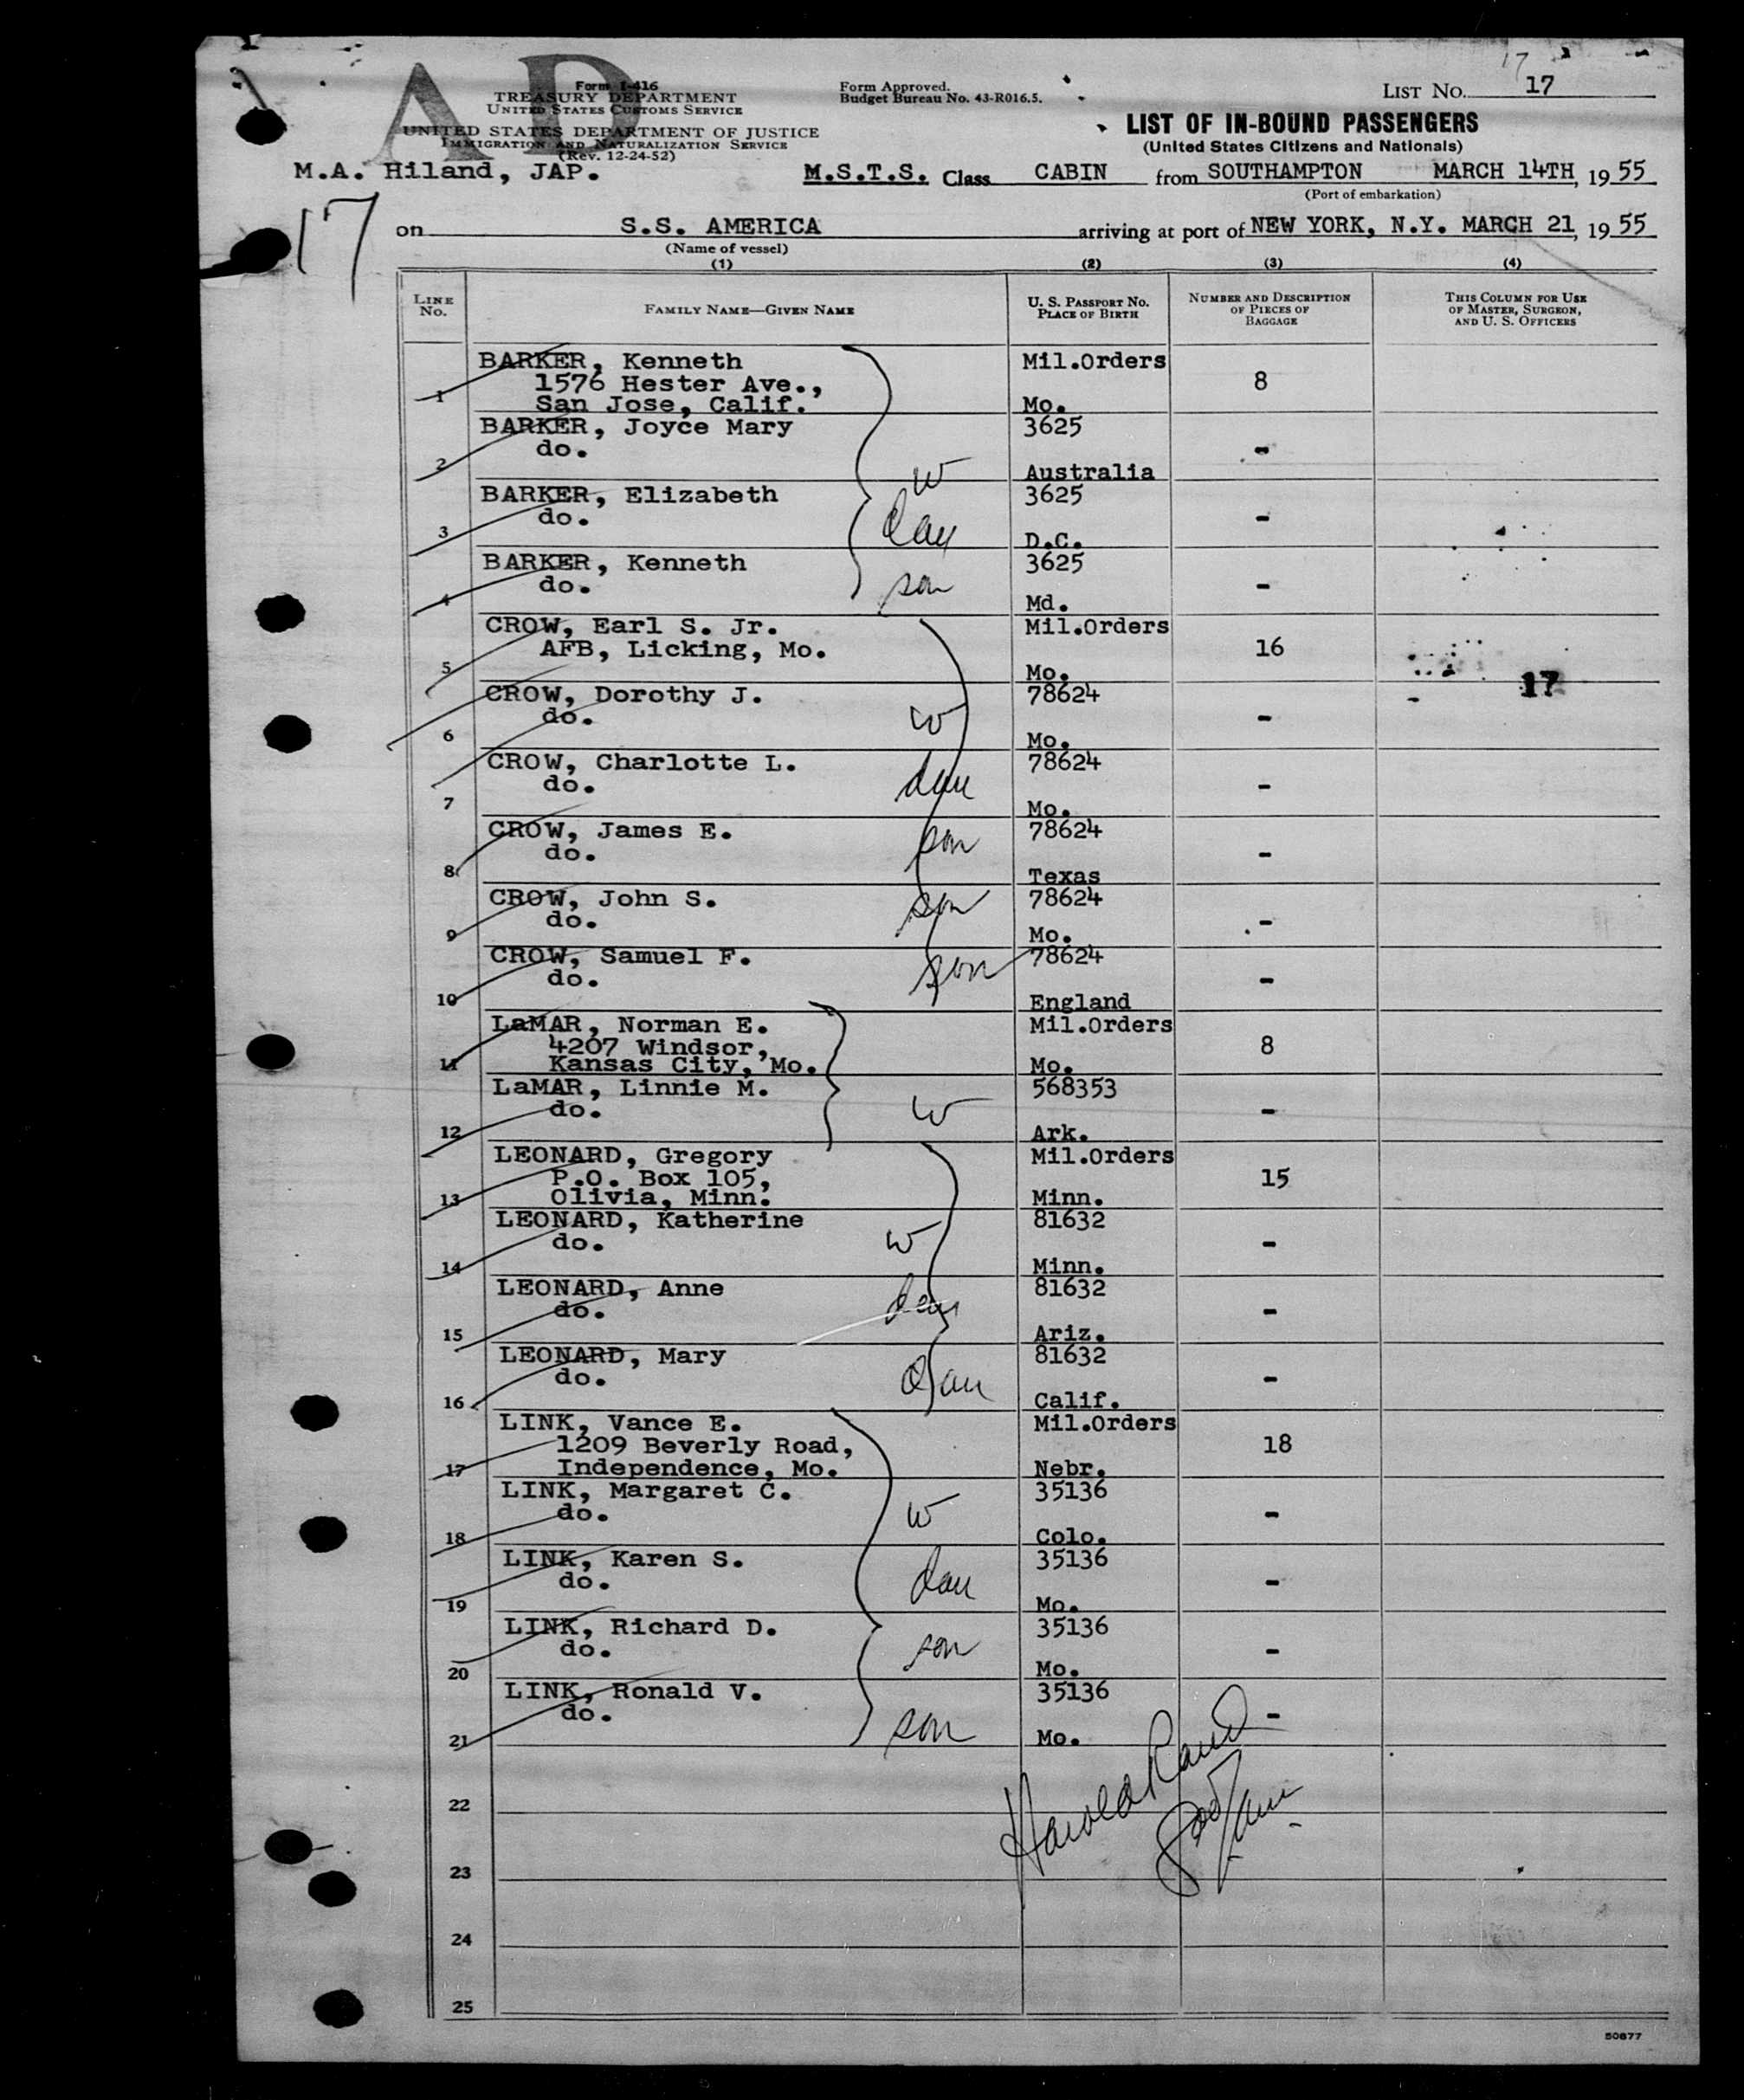 17
AD
Form I-416
TREASURY DEPARTMENT
UNITED STATES CUSTOMS SERVICE
UNITED STATES DEPARTMENT OF JUSTICE
IMMIGRATION AND NATURALIZATION SERVICE
(Rev. 12-24-52)
Form Approved.
Budget Bureau No. 43-R016.5.
LIST NO. 17
LIST OF IN-BOUND PASSENGERS
(United States Citizens and Nationals)
M.A. Hiland, JAP. M.S.T.S. Class CABIN from SOUTHAMPTON MARCH 14TH, 1955
(Port of embarkation)
17
on S.S. AMERICA arriving at port of NEW YORK, N.Y. MARCH 21, 1955
(Name of vessel)
(1) (2) (3) (4)
LINE No. FAMILY NAME—GIVEN NAME U. S. PASSPORT NO. PLACE OF BIRTH NUMBER AND DESCRIPTION OF PIECES OF BAGGAGE THIS COLUMN FOR USE OF MASTER, SURGEON, AND U. S. OFFICERS
BARKER, Kenneth Mil.Orders
1576 Hester Ave., 8
1 San Jose, Calif. Mo.
BARKER, Joyce Mary 3625
do. -
2 w Australia
BARKER, Elizabeth 3625
do. dau -
3 D.C.
BARKER, Kenneth 3625
do. son -
4 Md.
CROW, Earl S. Jr. Mil.Orders
AFB, Licking, Mo. 16
5 Mo.
17
CROW, Dorothy J. 78624
do. w -
6 Mo.
CROW, Charlotte L. 78624
do. dau -
7 Mo.
CROW, James E. son 78624
do. -
8 Texas
CROW, John S. son 78624
do. -
9 Mo.
CROW, Samuel F. son 78624
do. -
10 England
LaMAR, Norman E. Mil.Orders
4207 Windsor, 8
11 Kansas City, Mo. Mo.
LaMAR, Linnie M. 568353
do. w -
12 Ark.
LEONARD, Gregory Mil.Orders
P.O. Box 105, 15
13 Olivia, Minn. Minn.
LEONARD, Katherine 81632
do. w -
14 Minn.
LEONARD, Anne 81632
do. dau -
15 Ariz.
LEONARD, Mary 81632
do. dau -
16 Calif.
LINK, Vance E. Mil.Orders
1209 Beverly Road, 18
17 Independence, Mo. Nebr.
LINK, Margaret C. 35136
do. w -
18 Colo.
LINK, Karen S. 35136
do. dau -
19 Mo.
LINK, Richard D. 35136
do. son -
20 Mo.
LINK, Ronald V. 35136
do. son -
21 Mo.
22
Harold
23
24
25
50877